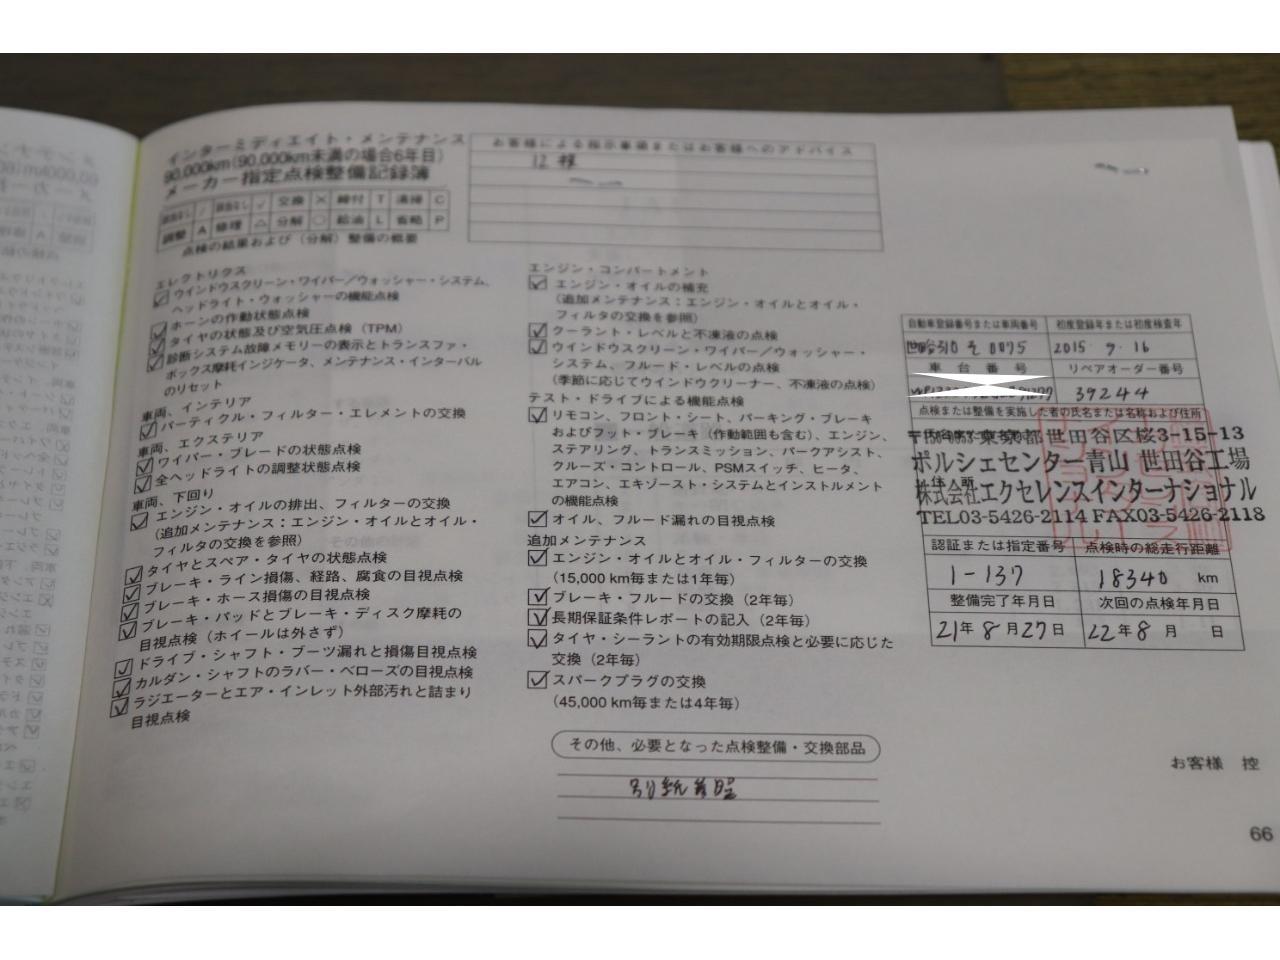 インターミディエイト・メンテナンス
90,000km(90,000km未満の場合6年目)
メーカー指定点検整備記録簿
交換 × 締付 T 清掃 C
調整 A 修理 △ 分解 ○ 給油 L 省略 P
点検の結果および(分解)整備の概要
エレクトリクス
ウインドウスクリーン・ワイパー/ウォッシャー・システム、
ヘッドライト・ウォッシャーの機能点検
ホーンの作動状態点検
タイヤの状態及び空気圧点検(TPM)
診断システム故障メモリーの表示とトランスファ・
ボックス摩耗インジケータ、メンテナンス・インターバル
のリセット
車両、インテリア
パーティクル・フィルター・エレメントの交換
車両、エクステリア
ワイパー・ブレードの状態点検
全ヘッドライトの調整状態点検
車両、下回り
エンジン・オイルの排出、フィルターの交換
(追加メンテナンス:エンジン・オイルとオイル・
フィルタの交換を参照)
タイヤとスペア・タイヤの状態点検
ブレーキ・ライン損傷、経路、腐食の目視点検
ブレーキ・ホース損傷の目視点検
ブレーキ・パッドとブレーキ・ディスク摩耗の
目視点検(ホイールは外さず)
ドライブ・シャフト・ブーツ漏れと損傷目視点検
カルダン・シャフトのラバー・ベローズの目視点検
ラジエーターとエア・インレット外部汚れと詰まり
目視点検
お客様による指示事項またはお客様へのアドバイス
12 様
エンジン・コンパートメント
エンジン・オイルの補充
(追加メンテナンス:エンジン・オイルとオイル・
フィルタの交換を参照)
クーラント・レベルと不凍液の点検
ウインドウスクリーン・ワイパー/ウォッシャー・
システム、フルード・レベルの点検
(季節に応じてウインドウクリーナー、不凍液の点検)
テスト・ドライブによる機能点検
リモコン、フロント・シート、パーキング・ブレーキ
およびフット・ブレーキ(作動範囲も含む)、エンジン、
ステアリング、トランスミッション、パークアシスト、
クルーズ・コントロール、PSMスイッチ、ヒータ、
エアコン、エキゾースト・システムとインストルメント
の機能点検
オイル、フルード漏れの目視点検
追加メンテナンス
エンジン・オイルとオイル・フィルターの交換
(15,000 km毎または1年毎)
ブレーキ・フルードの交換(2年毎)
長期保証条件レポートの記入(2年毎)
タイヤ・シーラントの有効期限点検と必要に応じた
交換(2年毎)
スパークプラグの交換
(45,000 km毎または4年毎)
その他、必要となった点検整備・交換部品
別紙参照
自動車登録番号または車両番号 初度登録年または初度検査年
世田谷310 そ 0075 2015・9・16
車台番号 リペアオーダー番号
39244
点検または整備を実施した者の氏名または名称および住所
東京都世田谷区桜3-15-13
ポルシェセンター青山 世田谷工場
株式会社エクセレンスインターナショナル
TEL03-5426-2114 FAX03-5426-2118
認証または指定番号 点検時の総走行距離
1-137 18340 km
整備完了年月日 次回の点検年月日
21年8月27日 22年8月 日
お客様 控
66